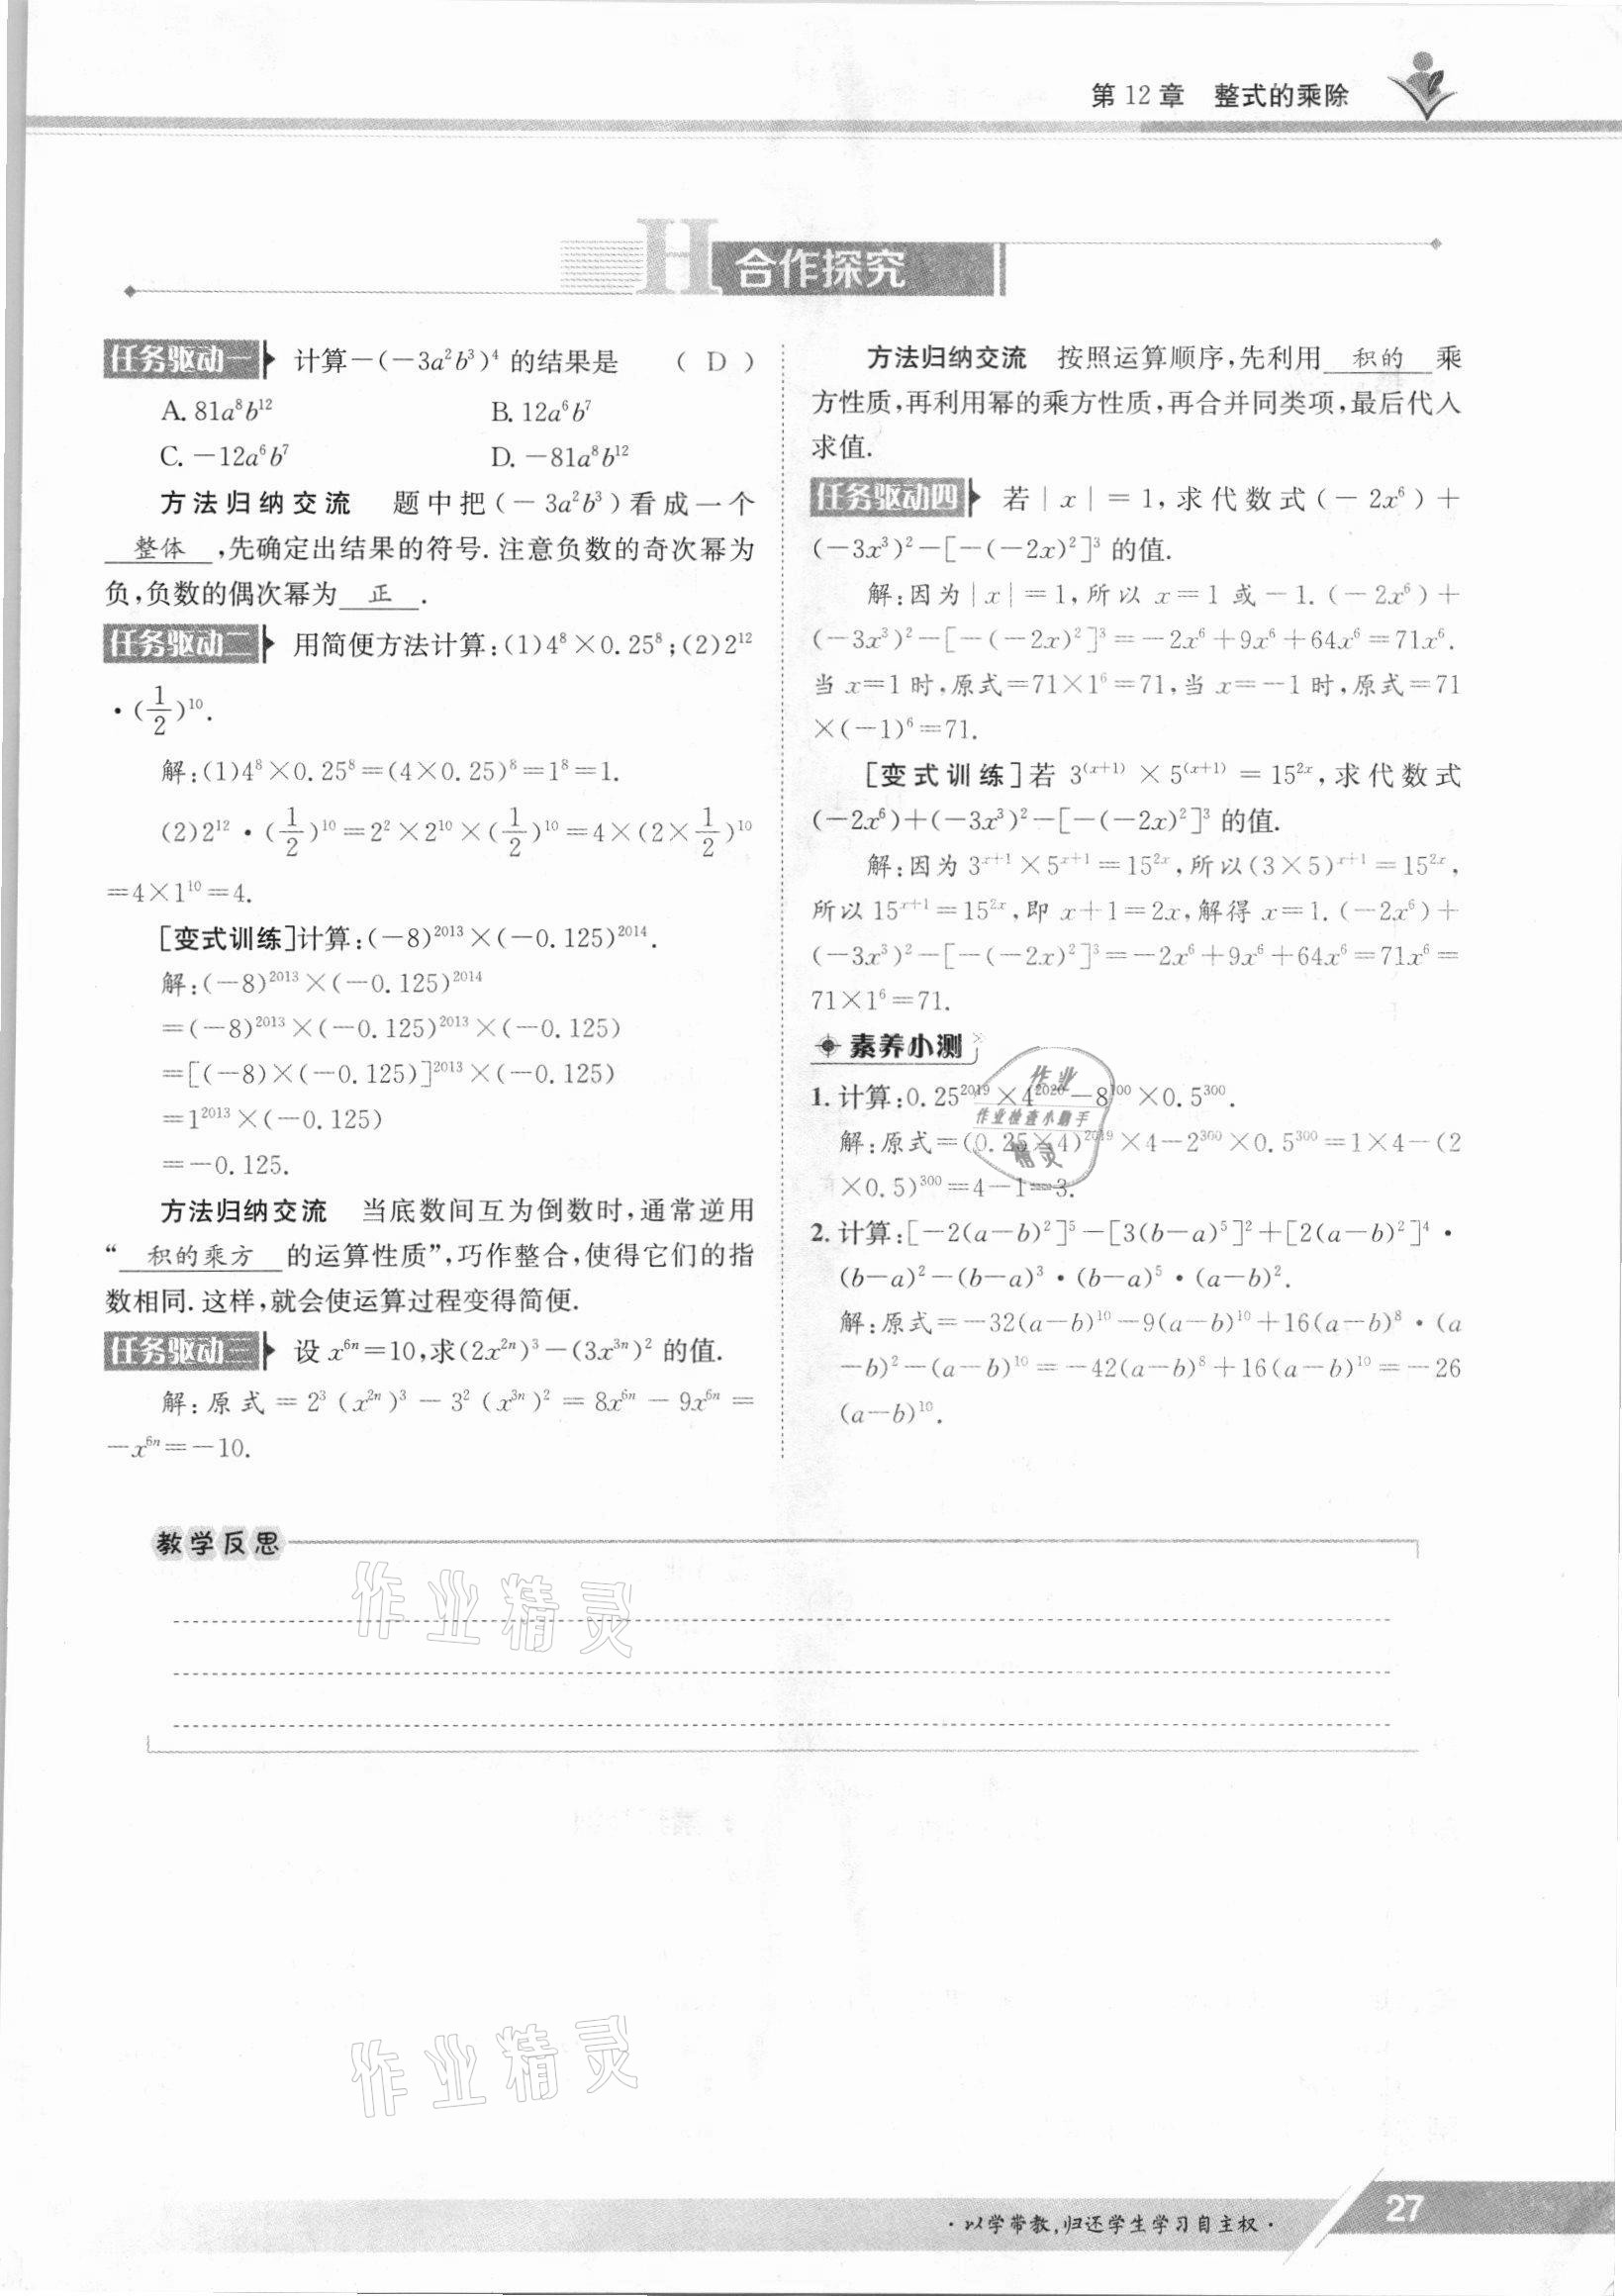 第 12 章　整式的乘除
H 合作探究
任务驱动一 计算－(－3a²b³)⁴ 的结果是　( D )
A. 81a⁸b¹²　B. 12a⁶b⁷
C. －12a⁶b⁷　D. －81a⁸b¹²
方法归纳交流　题中把(－3a²b³)看成一个
整体 ,先确定出结果的符号. 注意负数的奇次幂为
负,负数的偶次幂为 正 .
任务驱动二 用简便方法计算:(1)4⁸×0.25⁸;(2)2¹²
·(1/2)¹⁰.
解:(1)4⁸×0.25⁸＝(4×0.25)⁸＝1⁸＝1.
(2)2¹²·(1/2)¹⁰＝2²×2¹⁰×(1/2)¹⁰＝4×(2×1/2)¹⁰
＝4×1¹⁰＝4.
[变式训练]计算:(－8)²⁰¹³×(－0.125)²⁰¹⁴.
解:(－8)²⁰¹³×(－0.125)²⁰¹⁴
＝(－8)²⁰¹³×(－0.125)²⁰¹³×(－0.125)
＝[(－8)×(－0.125)]²⁰¹³×(－0.125)
＝1²⁰¹³×(－0.125)
＝－0.125.
方法归纳交流　当底数间互为倒数时,通常逆用
“ 积的乘方 的运算性质”,巧作整合,使得它们的指
数相同. 这样,就会使运算过程变得简便.
任务驱动三 设 x⁶ⁿ＝10,求(2x²ⁿ)³－(3x³ⁿ)² 的值.
解:原式＝2³(x²ⁿ)³－3²(x³ⁿ)²＝8x⁶ⁿ－9x⁶ⁿ＝
－x⁶ⁿ＝－10.
方法归纳交流　按照运算顺序,先利用 积的 乘
方性质,再利用幂的乘方性质,再合并同类项,最后代入
求值.
任务驱动四 若|x|＝1,求代数式(－2x⁶)＋
(－3x³)²－[－(－2x)²]³ 的值.
解:因为|x|＝1,所以 x＝1 或－1. (－2x⁶)＋
(－3x³)²－[－(－2x)²]³＝－2x⁶＋9x⁶＋64x⁶＝71x⁶.
当 x＝1 时,原式＝71×1⁶＝71,当 x＝－1 时,原式＝71
×(－1)⁶＝71.
[变式训练]若 3⁽ˣ⁺¹⁾×5⁽ˣ⁺¹⁾＝15²ˣ,求代数式
(－2x⁶)＋(－3x³)²－[－(－2x)²]³ 的值.
解:因为 3ˣ⁺¹×5ˣ⁺¹＝15²ˣ,所以(3×5)ˣ⁺¹＝15²ˣ,
所以 15ˣ⁺¹＝15²ˣ,即 x＋1＝2x,解得 x＝1. (－2x⁶)＋
(－3x³)²－[－(－2x)²]³＝－2x⁶＋9x⁶＋64x⁶＝71x⁶＝
71×1⁶＝71.
素养小测
1. 计算:0.25²⁰¹⁹×4²⁰²⁰－8¹⁰⁰×0.5³⁰⁰.
解:原式＝(0.25×4)²⁰¹⁹×4－2³⁰⁰×0.5³⁰⁰＝1×4－(2
×0.5)³⁰⁰＝4－1＝3.
作业
作业检查小助手
精灵
2. 计算:[－2(a－b)²]⁵－[3(b－a)⁵]²＋[2(a－b)²]⁴·
(b－a)²－(b－a)³·(b－a)⁵·(a－b)².
解:原式＝－32(a－b)¹⁰－9(a－b)¹⁰＋16(a－b)⁸·(a
－b)²－(a－b)¹⁰＝－42(a－b)⁸＋16(a－b)¹⁰＝－26
(a－b)¹⁰.
教学反思
作业精灵
作业精灵
·以学带教,归还学生学习自主权·
27